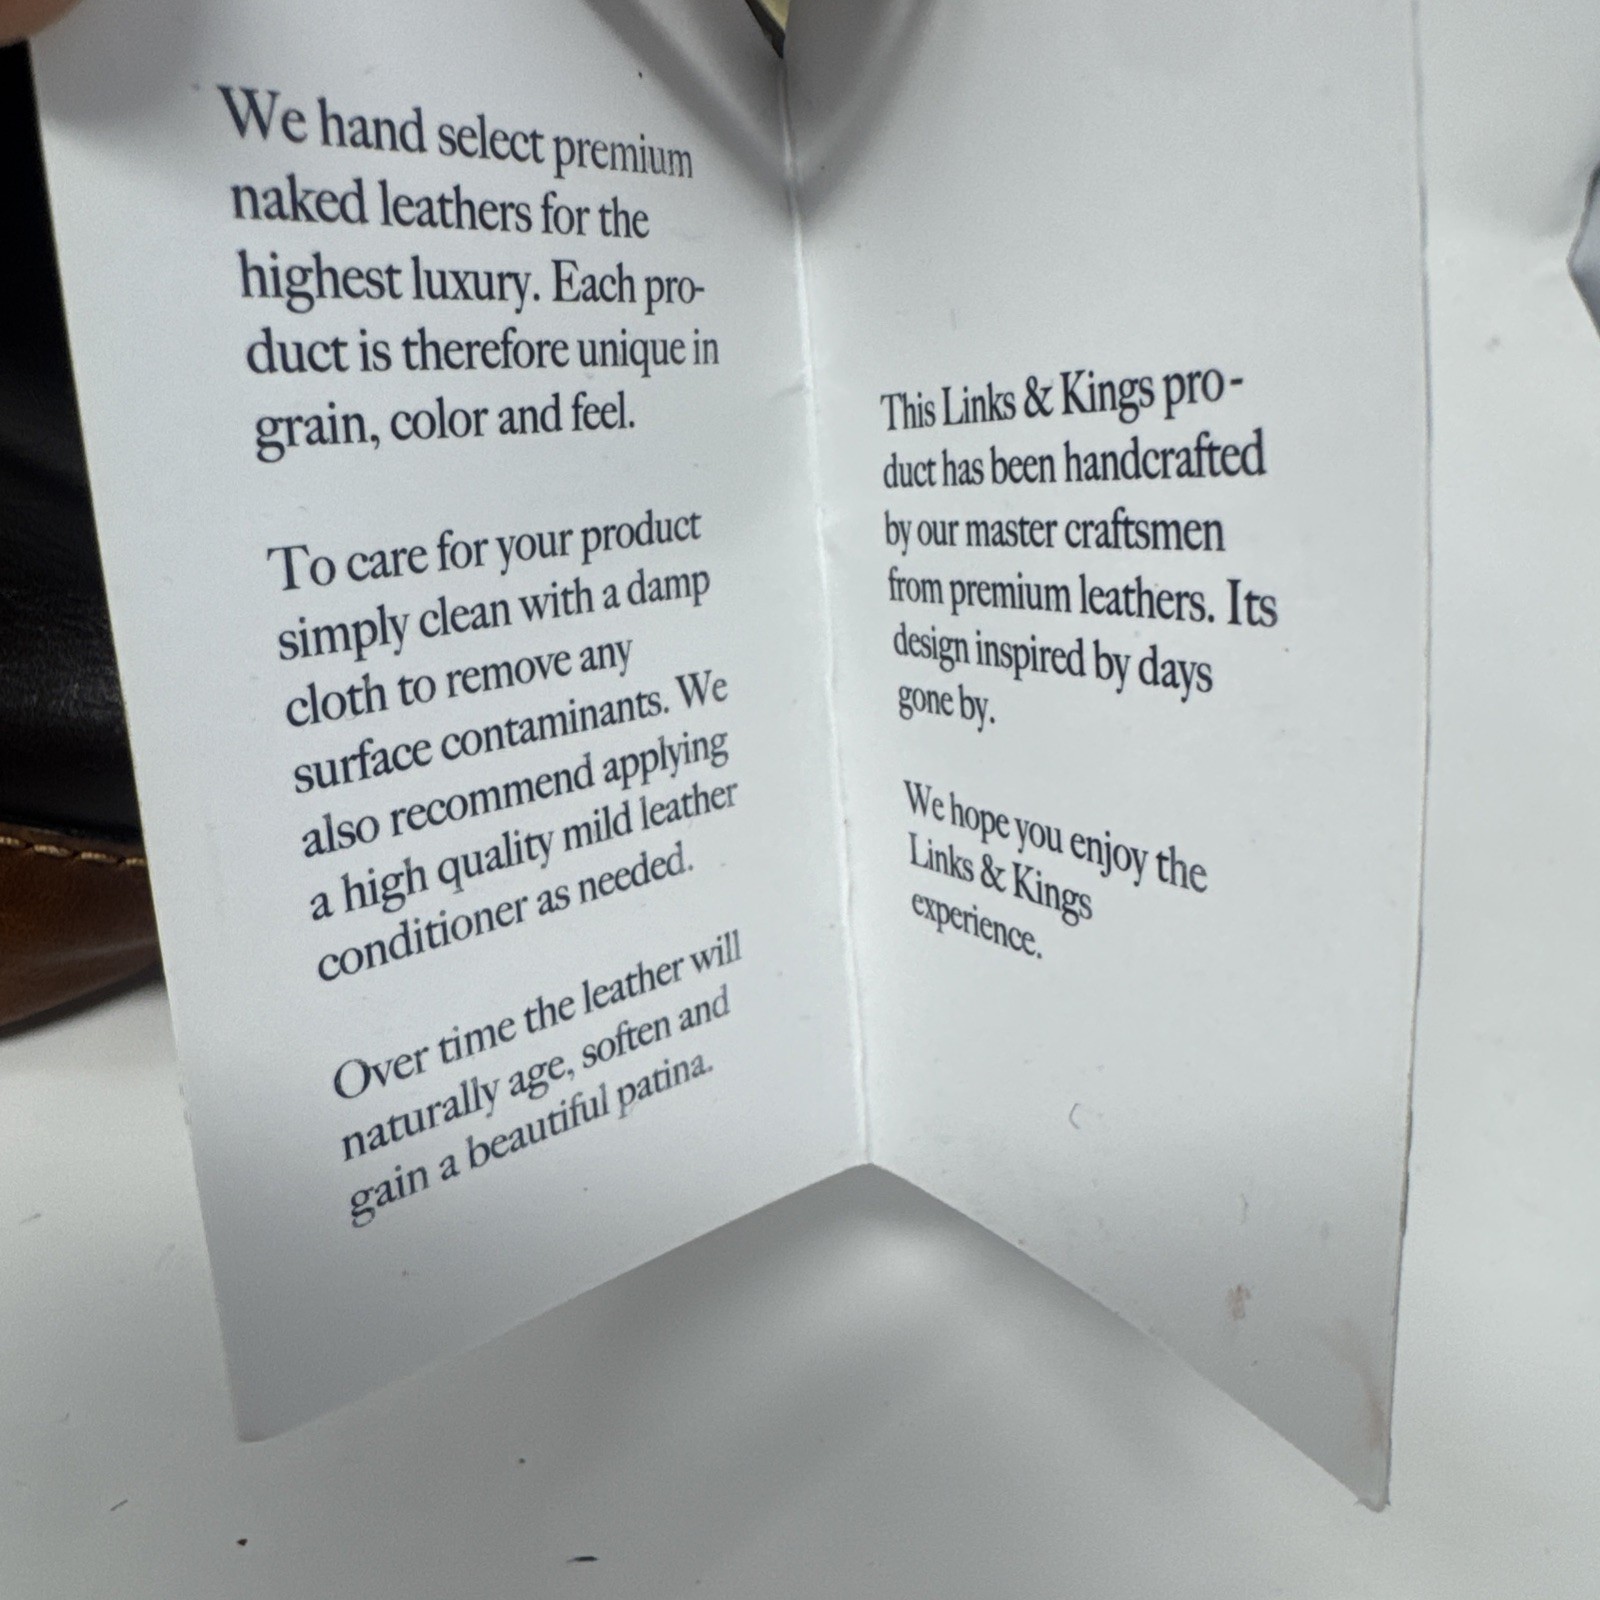 We hand select premium
naked leathers for the
highest luxury. Each pro-
duct is therefore unique in
grain, color and feel.
To care for your product
simply clean with a damp
cloth to remove any
surface contaminants. We
also recommend applying
a high quality mild leather
conditioner as needed.
Over time the leather will
naturally age, soften and
gain a beautiful patina.
This Links & Kings pro-
duct has been handcrafted
by our master craftsmen
from premium leathers. Its
design inspired by days
gone by.
We hope you enjoy the
Links & Kings
experience.